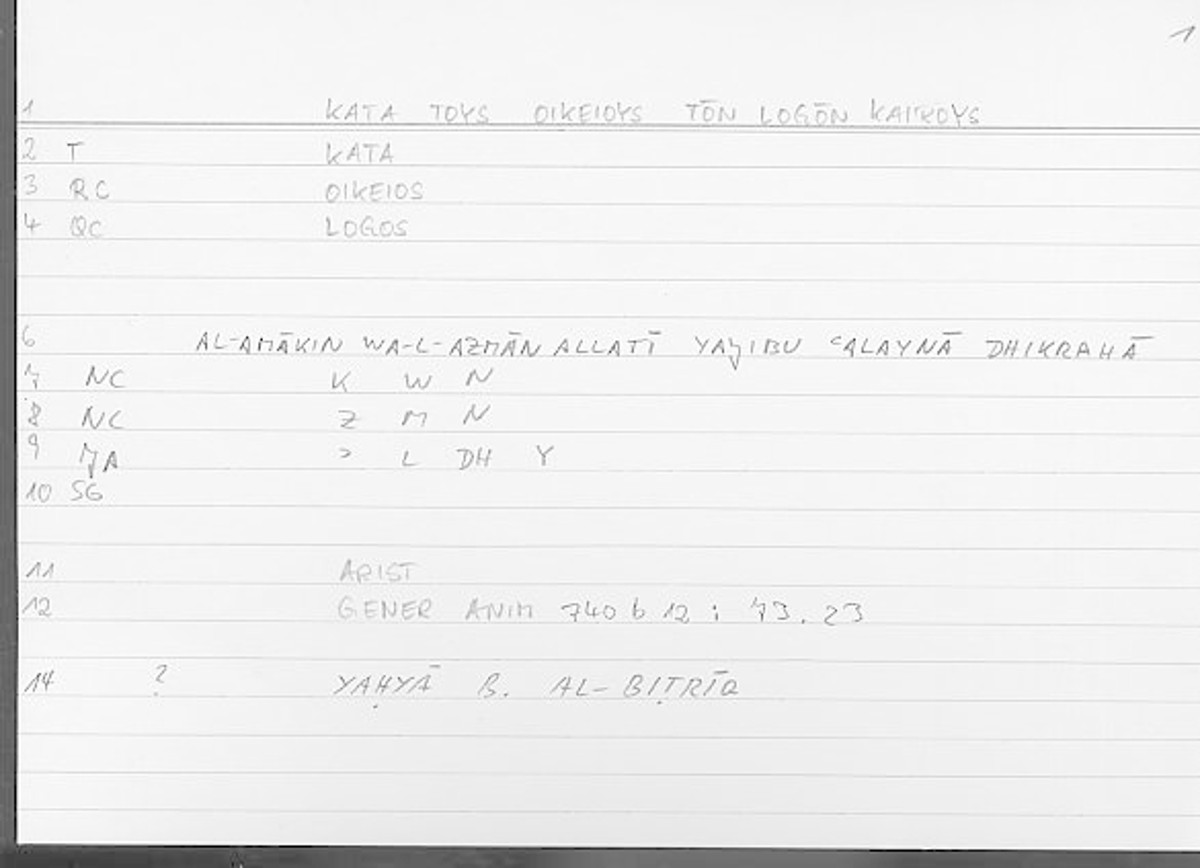 1
1 KATA TOYS OIKEIOYS TŌN LOGŌN KAIROYS
2 T KATA
3 RC OIKEIOS
4 QC LOGOS
6 AL-AMĀKIN WA-L-AZMĀN ALLATĪ YAJIBU ʿALAYNĀ DHIKRAHĀ
7 NC K W N
8 NC Z M N
9 JA ʾ L DH Y
10 SG
11 ARIST
12 GENER ANIM 740 b 12 ; 73.23
14 ? YAḤYĀ B. AL-BIṬRĪQ